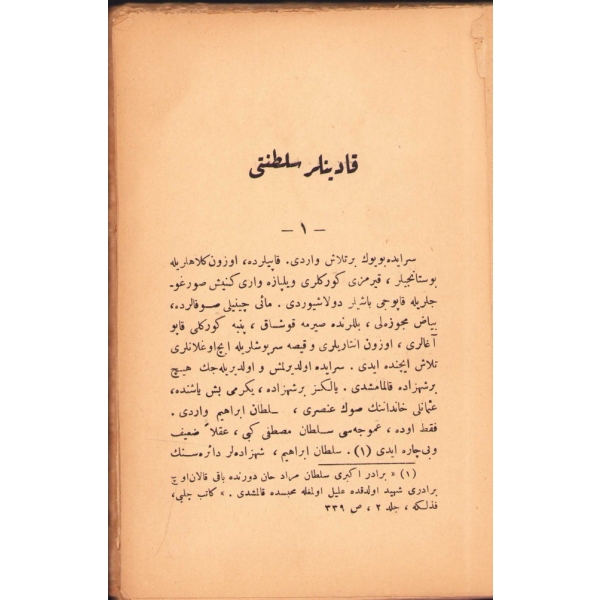 قادینلر سلطنتی
— ١ —
سرایده بویوك بر تلاش واردی . قاپیلرده، اوزون كلاهلریله
بوستانجیلر ، قیرمزی كوركلری ویلپازه واری كنیش صورغو-
جلریله قاپوجی باشیلر دولاشیوردی . مائی چینیلی صوفالرده،
بیاض مجوزه‌لی ، بللرنده صیرمه قوشاق ، پنبه كوركلی قاپو
آغالری ، اوزون انتاریلری و قیصه سرپوشلریله ایچ اوغلانلری
تلاش ایچنده ایدی . سرایده اولدیرلمش و اولدیریله‌جك هیچ
بر شهزاده قالمامشدی . یالكز بر شهزاده ، یكرمی بش یاشنده،
عثمانلی خاندانك صوك عنصری ، سلطان ابراهیم واردی .
فقط اوده ، عموجه‌سی سلطان مصطفی كبی ، عقلاً ضعیف
وبی‌چاره ایدی (١) . سلطان ابراهیم ، شهزاده‌لر دائره‌سنك
(١) « برادر اكبری سلطان مراد خان دورنده باقی قالان اوچ
برادری شهید اولدقده علیل اولمغله محبسده قالمشدی . » كاتب چلبی،
فذلكه ، جلد ٢ ، ص ٣٣٩